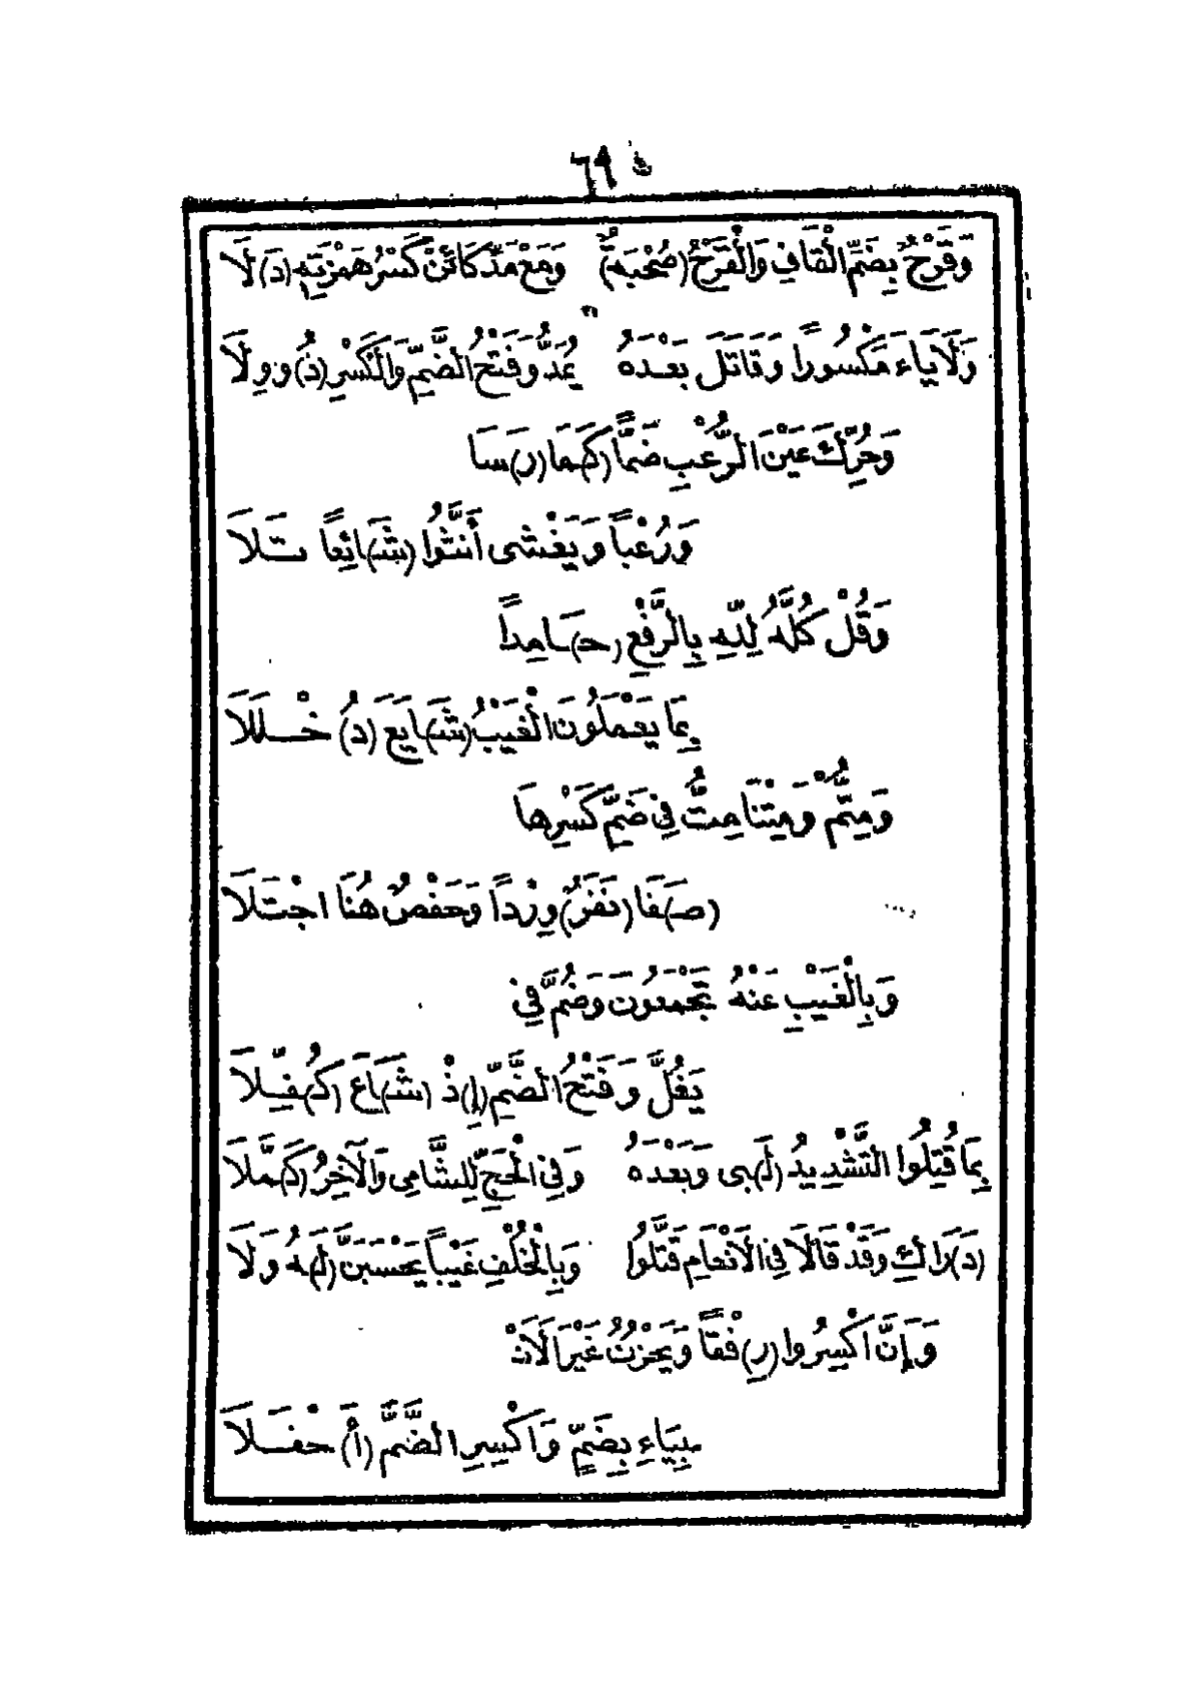 ٦٩
وَقَرْحٌ بِضَمِّ الْقَافِ وَالْقَرْحُ (صُحْبَةٌ) وَمَعْ مَدِّ كَائِنْ كَسْرُ هَمْزَتِهِ (دَ)لَا
وَلَا يَاءَ مَكْسُوراً وَقَاتَلَ بَعْدَهُ يُمَدُّ وَفَتْحُ الضَّمِّ وَالْكَسْرِ (ذُ)و وِلَا
وَحُرِّكَ عَيْنَ الرُّعْبِ ضَمًّا (كَ)مَا (رَ)سَا
وَرُعْباً وَيَغْشَى أَنَّثُوا (شَ)ائِعاً تَلَا
وَقُلْ كُلُّهُ لِلّهِ بِالرَّفْعِ (حَ)امِداً
بِمَا يَعْمَلُونَ الْغَيْبُ (شَ)ايَعَ (دُ)خْلُلَا
وَمِتُّمْ وَمِتْنَا مِتُّ فِي ضَمِّ كَسْرِهَا
(صَ)فَا (نَفَرٌ) وِرْداً وَحَفْصٌ هُنَا اجْتَلَا
وَبِالْغَيْبِ عَنْهُ تَجْمَعُونَ وَضُمَّ فِي
يَغُلَّ وَفَتْحُ الضَّمِّ (إِ)ذْ (شَ)اعَ (كُ)فِّلَا
بِمَا قُتِلُوا التَّشْدِيدُ (لَ)بى وَبَعْدَهُ وَفِي الْحَجِّ لِلشَّامِي وَالْآخِرُ (كَ)مَّلَا
(دَ)رَاكِ وَقَدْ قَالَا فِي الْأَنْعَامِ قَتَّلُوا وَبِالْخُلْفِ غَيْباً يَحْسَبَنَّ (لَ)هُ وَلَا
وَإِنَّ اكْسِرُوا (رِ)فْقاً وَيَحْزُنُ غَيْرَ الْأَنْ
بِيَاءِ بِضَمٍّ وَاكْسِرِ الضَّمَّ (أَ)حْفَلَا